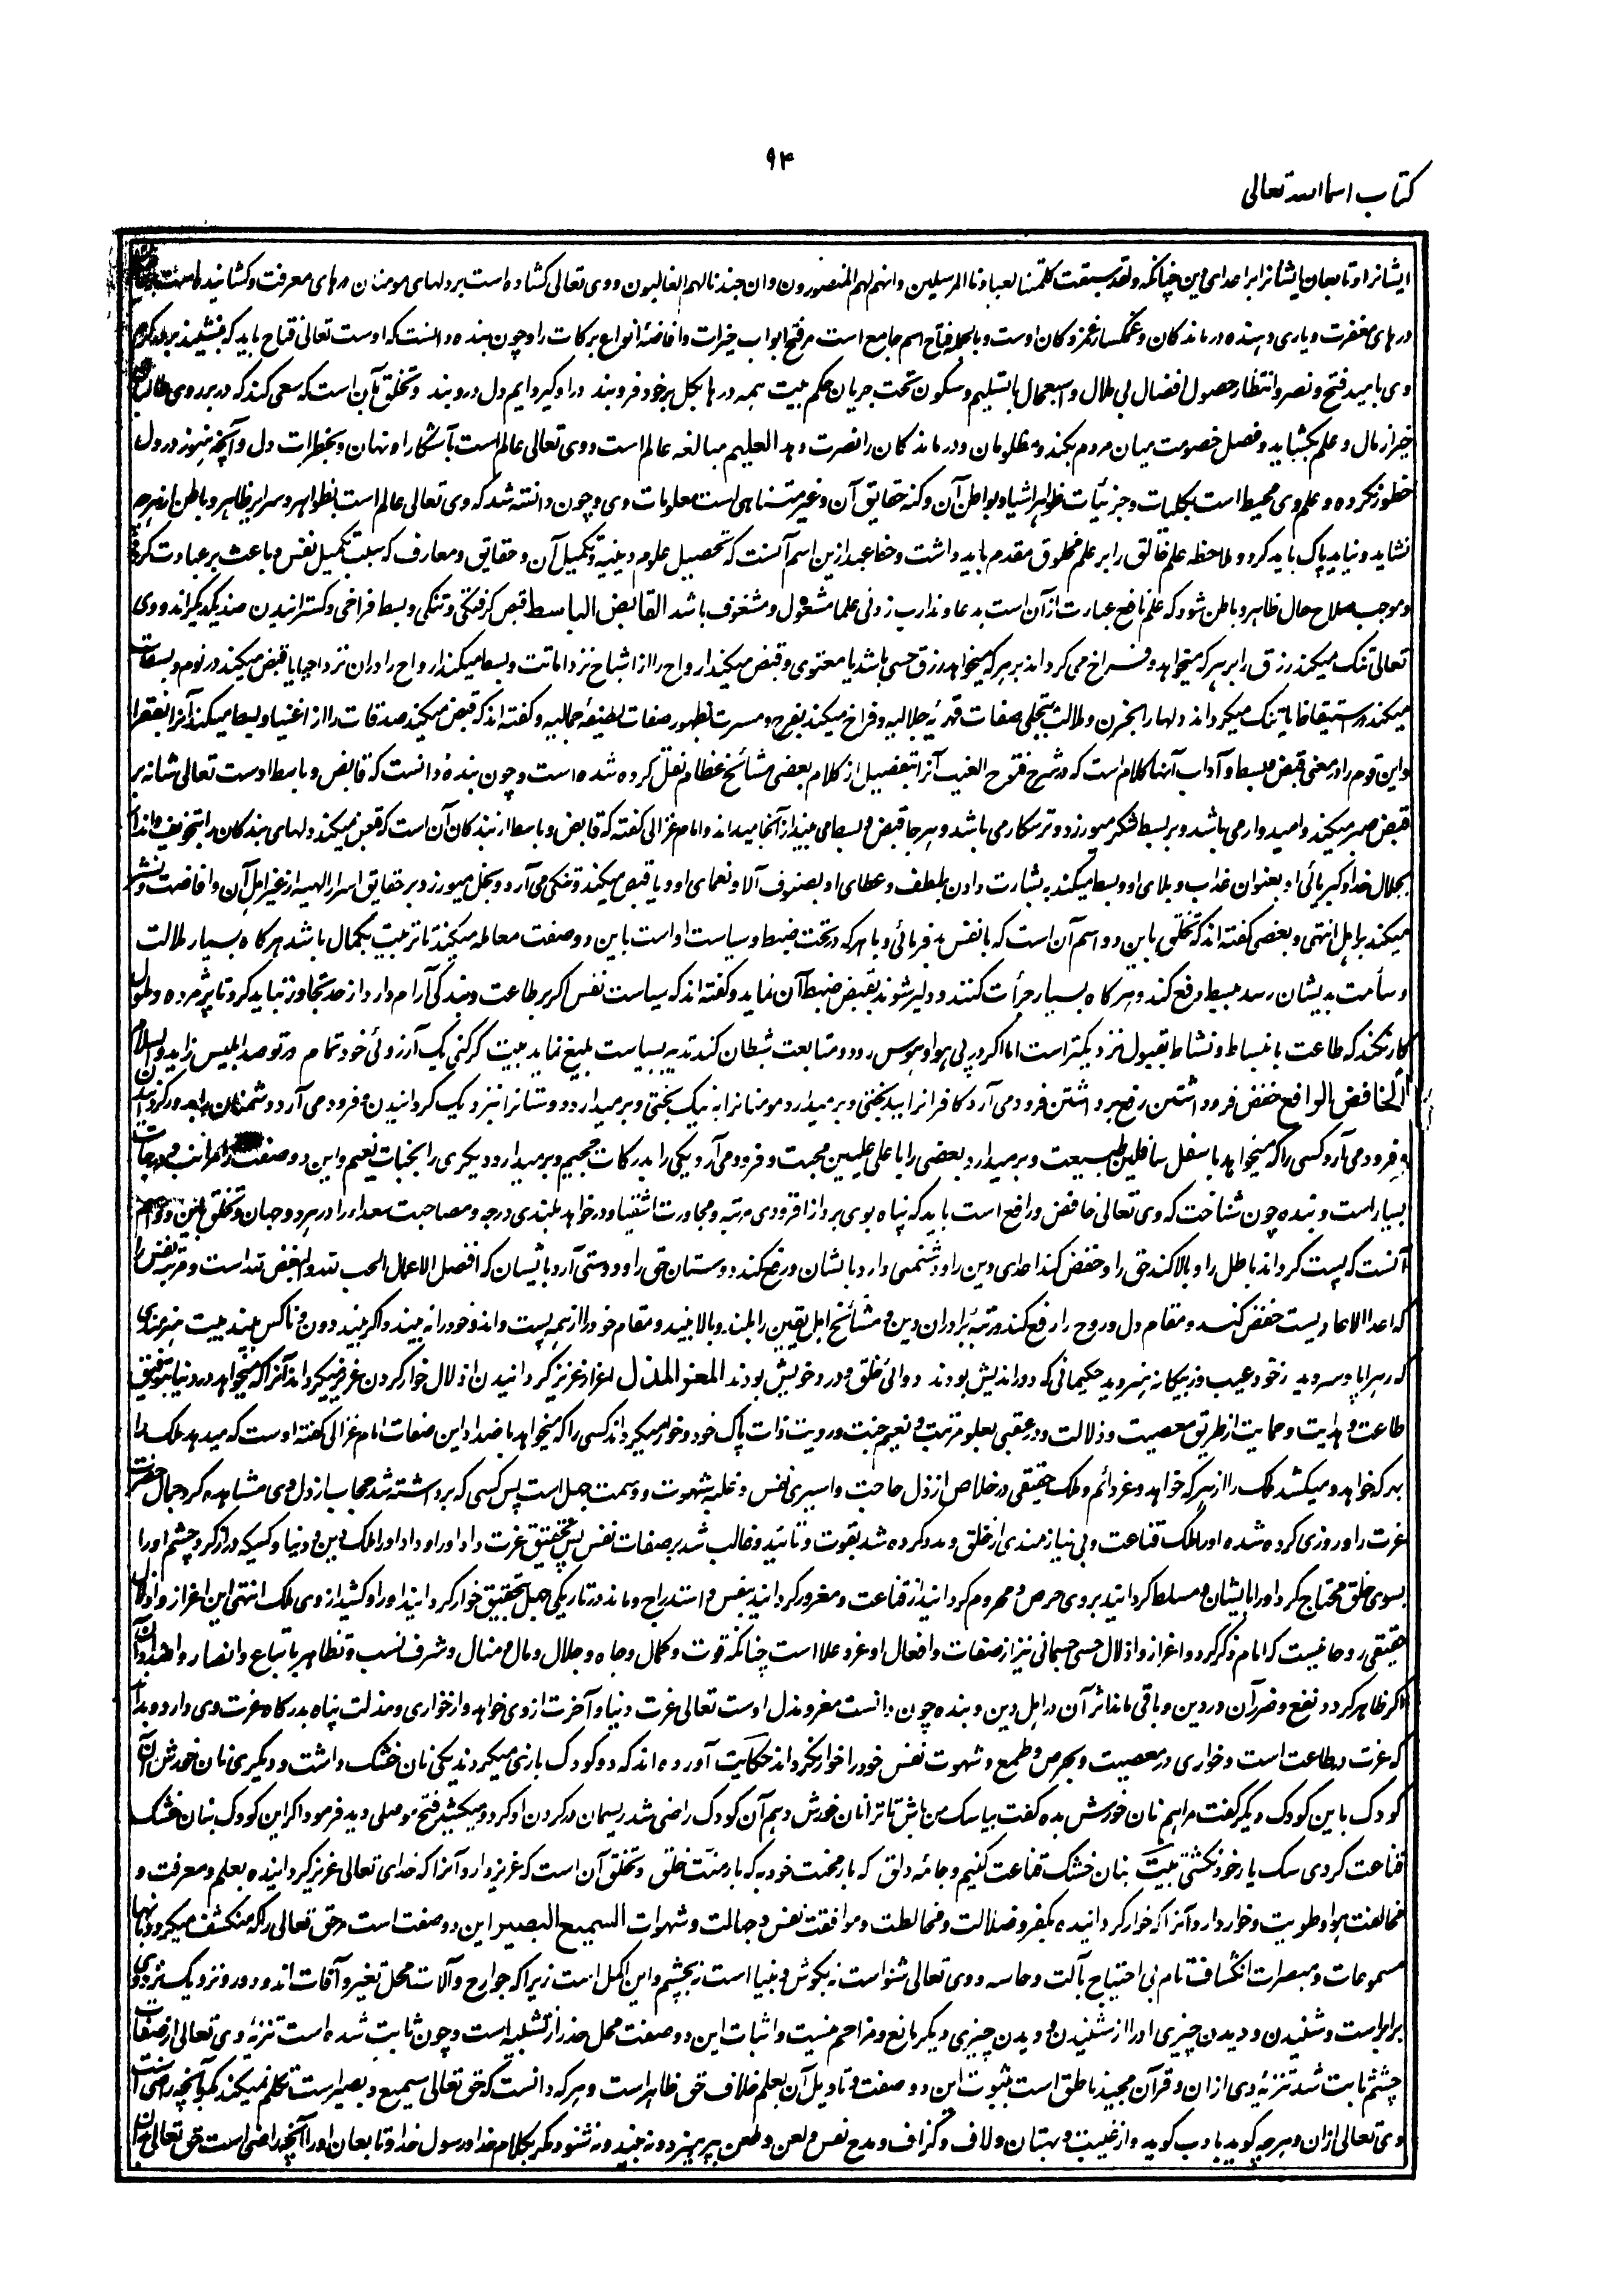 ۹۴
کتاب اسماالله تعالی
ایشانرا و تابعان ایشانرا بر اعدای دین چنانکه ولقد سبقت کلمتنا لعبادنا المرسلین وانهم لهم المنصورون وان جندنا لهم الغالبون ووی تعالی کشاده است بر دلهای مومنان درهای معرفت و کشانیده است
درهای مغفرت و یاری دهنده درماندکان و غمکسار غمزدکان اوست و بالجمله فتاح اسم جامع است مر فتح ابواب خیرات وافاضهٔ انواع برکات را و چون بنده دانست که اوست تعالی فتاح باید که بنشیند بر در کرم
وی بامید فتح و نصر و انتظار حصول افضال بی ملال و استعجال با تسلیم و سکون تحت جریان حکم بیت همه درها بکل بر خود فروبند دراو کیر و ایم دل درو بند و تخلق بآن است که سعی کند که در بر روی طالبان
خیر از مال و علم بکشاید و فصل خصومت میان مردم بکند و مظلومان و درماندکان را نصرت دهد العلیم مبالغه عالم است و وی تعالی عالم است بآشکارا و نهان و بخطرات دل و آنچه هنوز در دل
خطور نکرده و علم وی محیط است بکلیات و جزئیات ظواهر اشیا و بواطن آن و کنه حقایق آن و غیر متناهی است معلومات وی و چون دانسته شد که وی تعالی عالم است بظواهر و سرایر ظاهر و باطن از هرچه
نشاید و نباید پاک باید کرد و ملاحظه علم خالق را بر علم مخلوق مقدم باید داشت و حظ عبد ازین اسم آنست که تحصیل علوم دینیه و تکمیل آن و حقایق و معارف که سبب تکمیل نفس و باعث بر عبادت کردد
و موجب صلاح حال ظاهر و باطن شود که علم نافع عبارت از آن است بدعا و ندارب زدنی علما مشغول و مشغوف باشد القابض الباسط قبض کرفتکی و تنکی و بسط فراخی و کسترانیدن ضد یکدیکراند و وی
تعالی تنک میکند رزق را بر هر که میخواهد و فراخ می کرداند بر هر که میخواهد رزق حسی باشد یا معنوی و قبض میکند ارواح را از اشباح نزد اماتت و بسط میکند ارواح را دران نزد احیا یا قبض میکند در نوم و بسط
میکند در استیقاظ یا تنک میکرداند دلها را بحزن و ملالت بتجلی صفات قهریه جلالیه و فراخ میکند بفرح و مسرت بظهور صفات لطیفهٔ جمالیه و کفته اند که قبض میکند صدقات را از اغنیا و بسط میکند آنرا بفقرا
و این قوم را در معنی قبض و بسط و آداب آنها کلام است که در شرح فتوح الغیب آنرا بتفصیل از کلام بعضی مشائخ عظام نقل کرده شده است و چون بنده دانست که قابض و باسط اوست تعالی شانه بر
قبض صبر میکند و امیدوار می باشد و بر بسط شکر میورزد و ترسکار می باشد و هر جا قبض و بسط می بیند از آنجا میداند و امام غزالی کفته که قابض و باسط از بندکان آن است که قبض میکند دلهای بندکان را بتخویف و انذار
بجلال خدا و کبریائی او بعنوان عذاب و بلای او و بسط میکند به بشارت دادن بلطف و عطای او بصنوف آلا و نعمای او و یا قبض میکند و تنکی می آرد و بخل میورزد بر حقایق اسرار الهیه از غیر اهل آن و افاضت و نشر
میکند بر اهل انتهی و بعضی کفته اند که تخلق باین دو اسم آن است که با نفس به فرمائی و با هر که در تحت ضبط و سیاست او است باین دو صفت معامله میکند تا تربیت بکمال باشد هر کاه بسیار ملالت
و سأمت بدیشان رسد ببسط دفع کند و هر کاه بسیار جرأت کنند و دلیر شوند بقبض ضبط آن نماید و کفته اند که سیاست نفس اکر بر طاعت و بندکی آرام دارد از حد تجاوز نباید کرد تا پژمرده و ملول
کار نکند که طاعت با نبساط و نشاط بقبول نزدیکتر است اما اکر در پی هوا و هوس رود و متابعت شطان کند تدبیه بسیاست بلیغ نماید بیت کر کنی یک آرزوئی خود تمام در تو صد ابلیس زاید والسلام
الخافض الرافع خفض فروداشتن رفع برداشتن فرود می آرد کافرانرا ببدبختی و بر میدارد مومنانرا به نیک بختی و بر میدارد دوستانرا بنزدیک کردانیدن و فرود می آرد دشمنان را بدور کردانیدن
و فرود می آرد کسی را که میخواهد باسفل سافلین طبیعت و بر میدارد بعضی را باعلی علیین محبت و فرود می آرد یکی را بدرکات جحیم و بر میدارد دیکری را بجنات نعیم و این دو صفت را مراتب و درجات
بسیار است و بنده چون شناخت که وی تعالی خافض و رافع است باید که پناه بوی برد از فزودی مرتبه و مجاورت اشقیا و در خواهد بلندی درجه و مصاحبت سعدا را در هر دو جهان و تخلق باین دو اسم
آنست که پست کرداند باطل را و بالا کند حق را و خفض کند اعدای دین را و دشمنی دارد باایشان و رفع کند دوستان حق را و دوستی آرد باایشان که افضل الاعمال الحب لله والبغض لله است و مرتبه نفس را
که اعدا الاعادیست خفض کند و مقام دل و روح را رفع کند و مرتبهٔ برادران دین و مشائخ اهل یقین را بلند و بالا بیند و مقام خود را از همه پست داند و خود را نه بیند و اکر بیند دون و ناکس بیند بیت هنرمندی
که در هر اپا و سر و ید ز خود عیب و زبیکانه هنر و ید حکیمانی که دوراندیش بودند دوائی خلق و درد خویش بودند المعز المذل اعزاز عزیز کردانیدن اذلال خوار کردن عزیز میکرداند آنرا که میخواهد در دنیا بتوفیق
طاعت و هدایت و حمایت از طریق معصیت و ذلالت و در عقبی بعلو مرتبت و نعیم جنت و رویت ذات پاک خود و خوار میکرداند کسی را که میخواهد باضداد این صفات امام غزالی کفته اوست که میدهد ملک را
بهر که خواهد و میکشد ملک را از هر که خواهد و عز دائم و ملک حقیقی در خلاص از ذل حاجت و اسیری نفس و غلبه شهوت و وسمت جهل است پس کسی که برداشته شد حجاب از دل وی مشاهده کرد جمال حضرت
عزت را و روزی کرده شده او را ملک قناعت و بی نیازمندی از خلق و مدد کرده شد بقوت و تائید و غالب شد بر صفات نفس پس بتحقیق عزت داد او را و داد او را ملک دین و دنیا و کسیکه دراز کرد چشم او را
بسوی خلق محتاج کرد او را بایشان و مسلط کردانید بر وی حرص و محروم کردانید از قناعت و مغرور کردانید بنفس و استدراج و ماند در تاریکی جهل بتحقیق خوار کردانید او را و کشید از وی ملک انتهی این اعزاز و اذلال
حقیقی روحانیست که امام ذکر کرد و اعزاز و اذلال حسی جسمانی نیز از صفات و افعال او عز و علا است چنانکه قوت و کمال و جاه و جلال و مال و منال و شرف نسب و تظاهر باتباع و انصار و اضداد آن
اکر ظاهر کردد نفع و ضرر آن در دین و باقی ماند اثر آن در اهل دین و بنده چون دانست معز و مذل اوست تعالی عزت دنیا و آخرت از وی خواهد و از خواری و مذلت پناه بدرکاه عزت وی دارد و بداند
که عزت در طاعت است و خواری در معصیت و بحرص و طمع و شهوت نفس خود را خوار نکرداند حکایت آورده اند که دو کودک بازی میکردند یکی نان خشک داشت و دیکری نان خورش آن
کودک باین کودک دیکر کفت مراهم نان خورش بده کفت بیا سک من باش تا ترا نان خورش دهم آن کودک راضی شد ریسمان در کردن او کرد و میکشید فتح موصلی دید فرمود اکر این کودک بنان خشک
قناعت کردی سک یار خود نکشتی بیت بنان خشک قناعت کنیم و جامهٔ دلق که بار محنت خود به که بار منت خلق و تخلق آن است که عزیز دارد آنرا که خدای تعالی عزیز کردانیده بعلم و معرفت و
مخالفت هوا و طویت و خوار دارد آنرا که خوار کردانیده بکفر و ضلالت و مخالطت و موافقت نفس و جهالت و شهوات السمیع البصیر این دو صفت است مر حق تعالی را که منکشف میکردد بآنها
مسموعات و مبصرات انکشاف تام بی احتیاج بآلت و حاسه و وی تعالی شنواست نه بکوش و بینا است نه بچشم و این اکمل است زیرا که جوارح و آلات محل تغیر و آفات اند و دور و نزدیک نزد وی
برابر است و شنیدن و دیدن چیزی او را از شنیدن و دیدن چیزی دیکر مانع و مزاحم نیست و اثبات این دو صفت محمل حذر از تشبیه است و چون ثابت شده است تنزیه وی تعالی از صفات
چشم ثابت شد تنزیه وی ازان و قرآن مجید ناطق است بثبوت این دو صفت و تاویل آن بعلم خلاف حق ظاهر است و هر که دانست که حق تعالی سمیع و بصیر است تکلم نمیکند مکر بآنچه راضی است
وی تعالی ازان و هر چه کوید بادب کوید و از غیبت و بهتان و لاف و کزاف و مدح نفس و لعن و طعن بپرهیزد و نه بیند و نه شنود مکر بکلام خدا و رسول خدا و تابعان او را و آنچه راضی است حق تعالی ازان